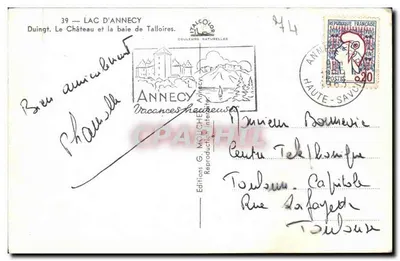 39 — LAC D'ANNECY
Duingt. Le Château et la baie de Talloires.
COULEURS NATURELLES
74
REPUBLIQUE FRANÇAISE
0,20
HAUTE-SAVOIE
ANNECY
Vacances heureuses
Bien amicalement
Editions G. Annecy
Reproduction interdite
Monsieur
Centre Téléphonique
Toulouse-Capitole
Rue Lafayette
Toulouse